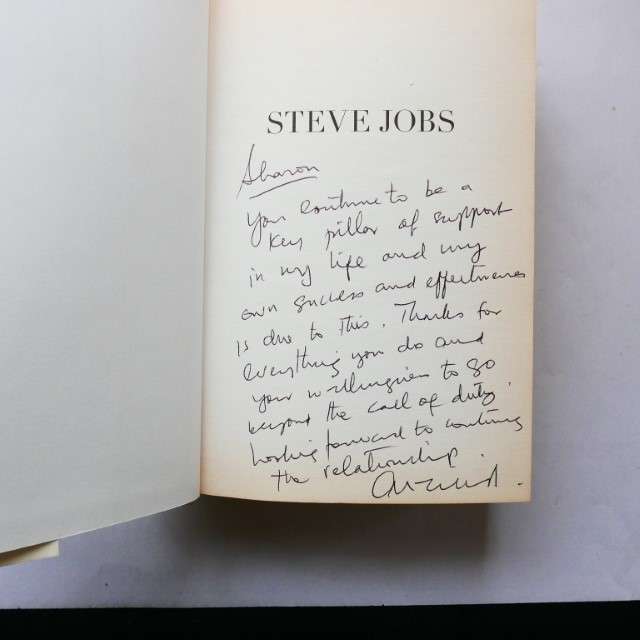 STEVE JOBS
Sharon
You continue to be a
key pillar of support
in my life and my
own success and effectiveness
is due to this. Thanks for
everything you do and
your willingness to go
beyond the call of duty.
Looking forward to continuing
the relationship.